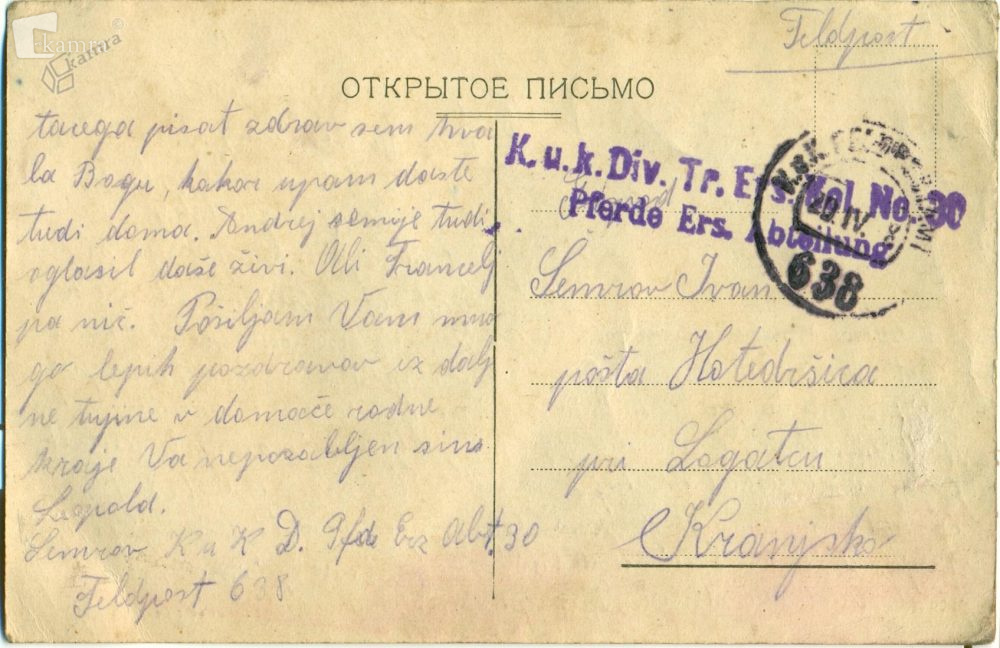 kamra
kamra
Feldpost
ОТКРЫТОЕ ПИСЬМО
tacega pisat zdrav sem hva
la Bogu, kakor upam daste
tudi doma. Andrej semije tudi
oglasil daše živi. Ali Francelj
pa nič. Pošiljam Vam mno
go lepih pozdravov iz dalj
ne tujine v domače rodne
kraje Va nepozabljen sin
Leopold.
Semrov K u K D. Pfde Erz Abt. 30
Feldpost 638
K. u. k. Div. Tr. Ers. No. 30
Pferde Ers. Abteilung
20 IV
638
Semrov Ivan
pošta Hotedršica
pri Logatcu
Kranjsko